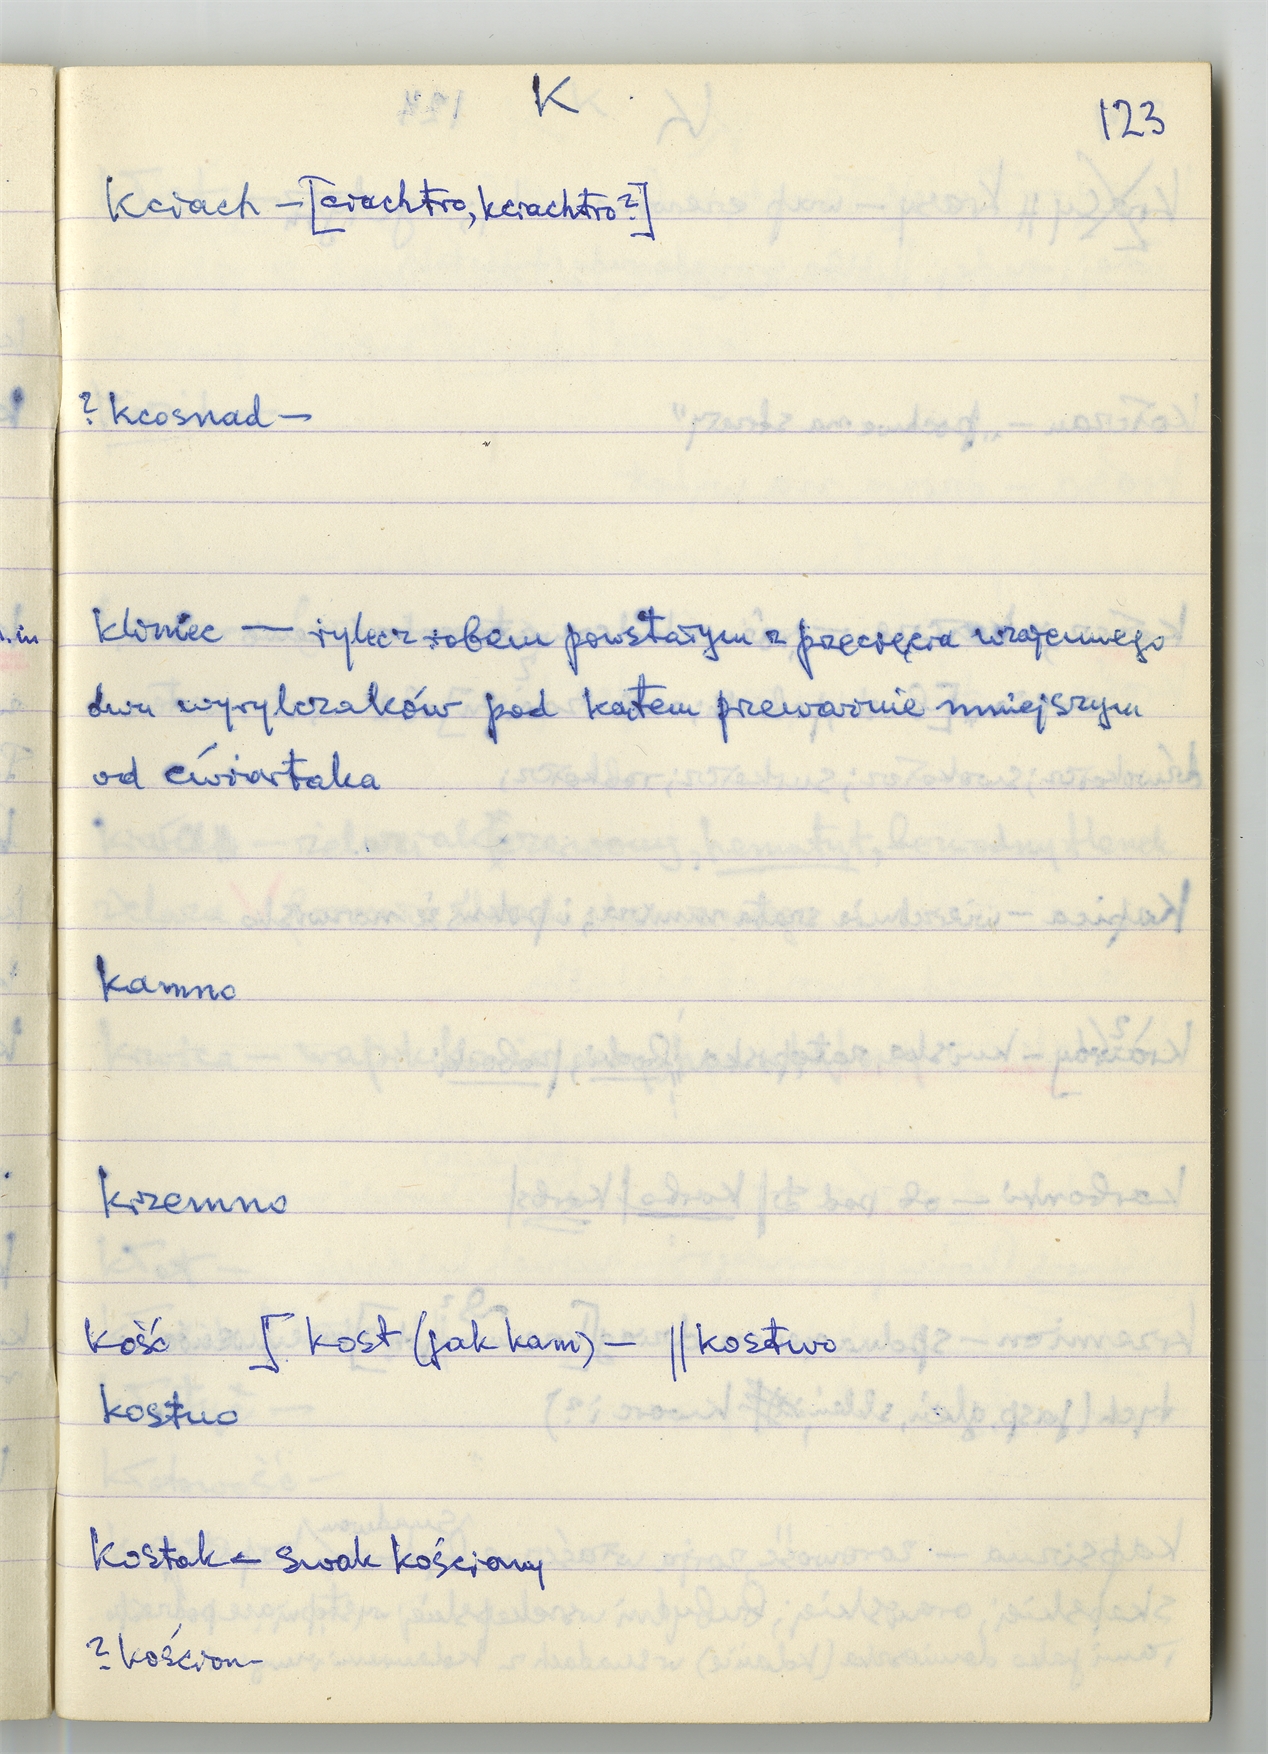 K
123
Kciach – [ciachtro, kciachtro?]
? kcosnad –
m.in
kliniec — rylec z rąbem powstałym z przecięcia wzajemnego
dwu wyrylczaków pod kątem przeważnie mniejszym
od ćwiartaka
kamno
krzemno
kość [ kost (jak kam) – || kostwo
kostno
kostak – swak kościany
? kościon –